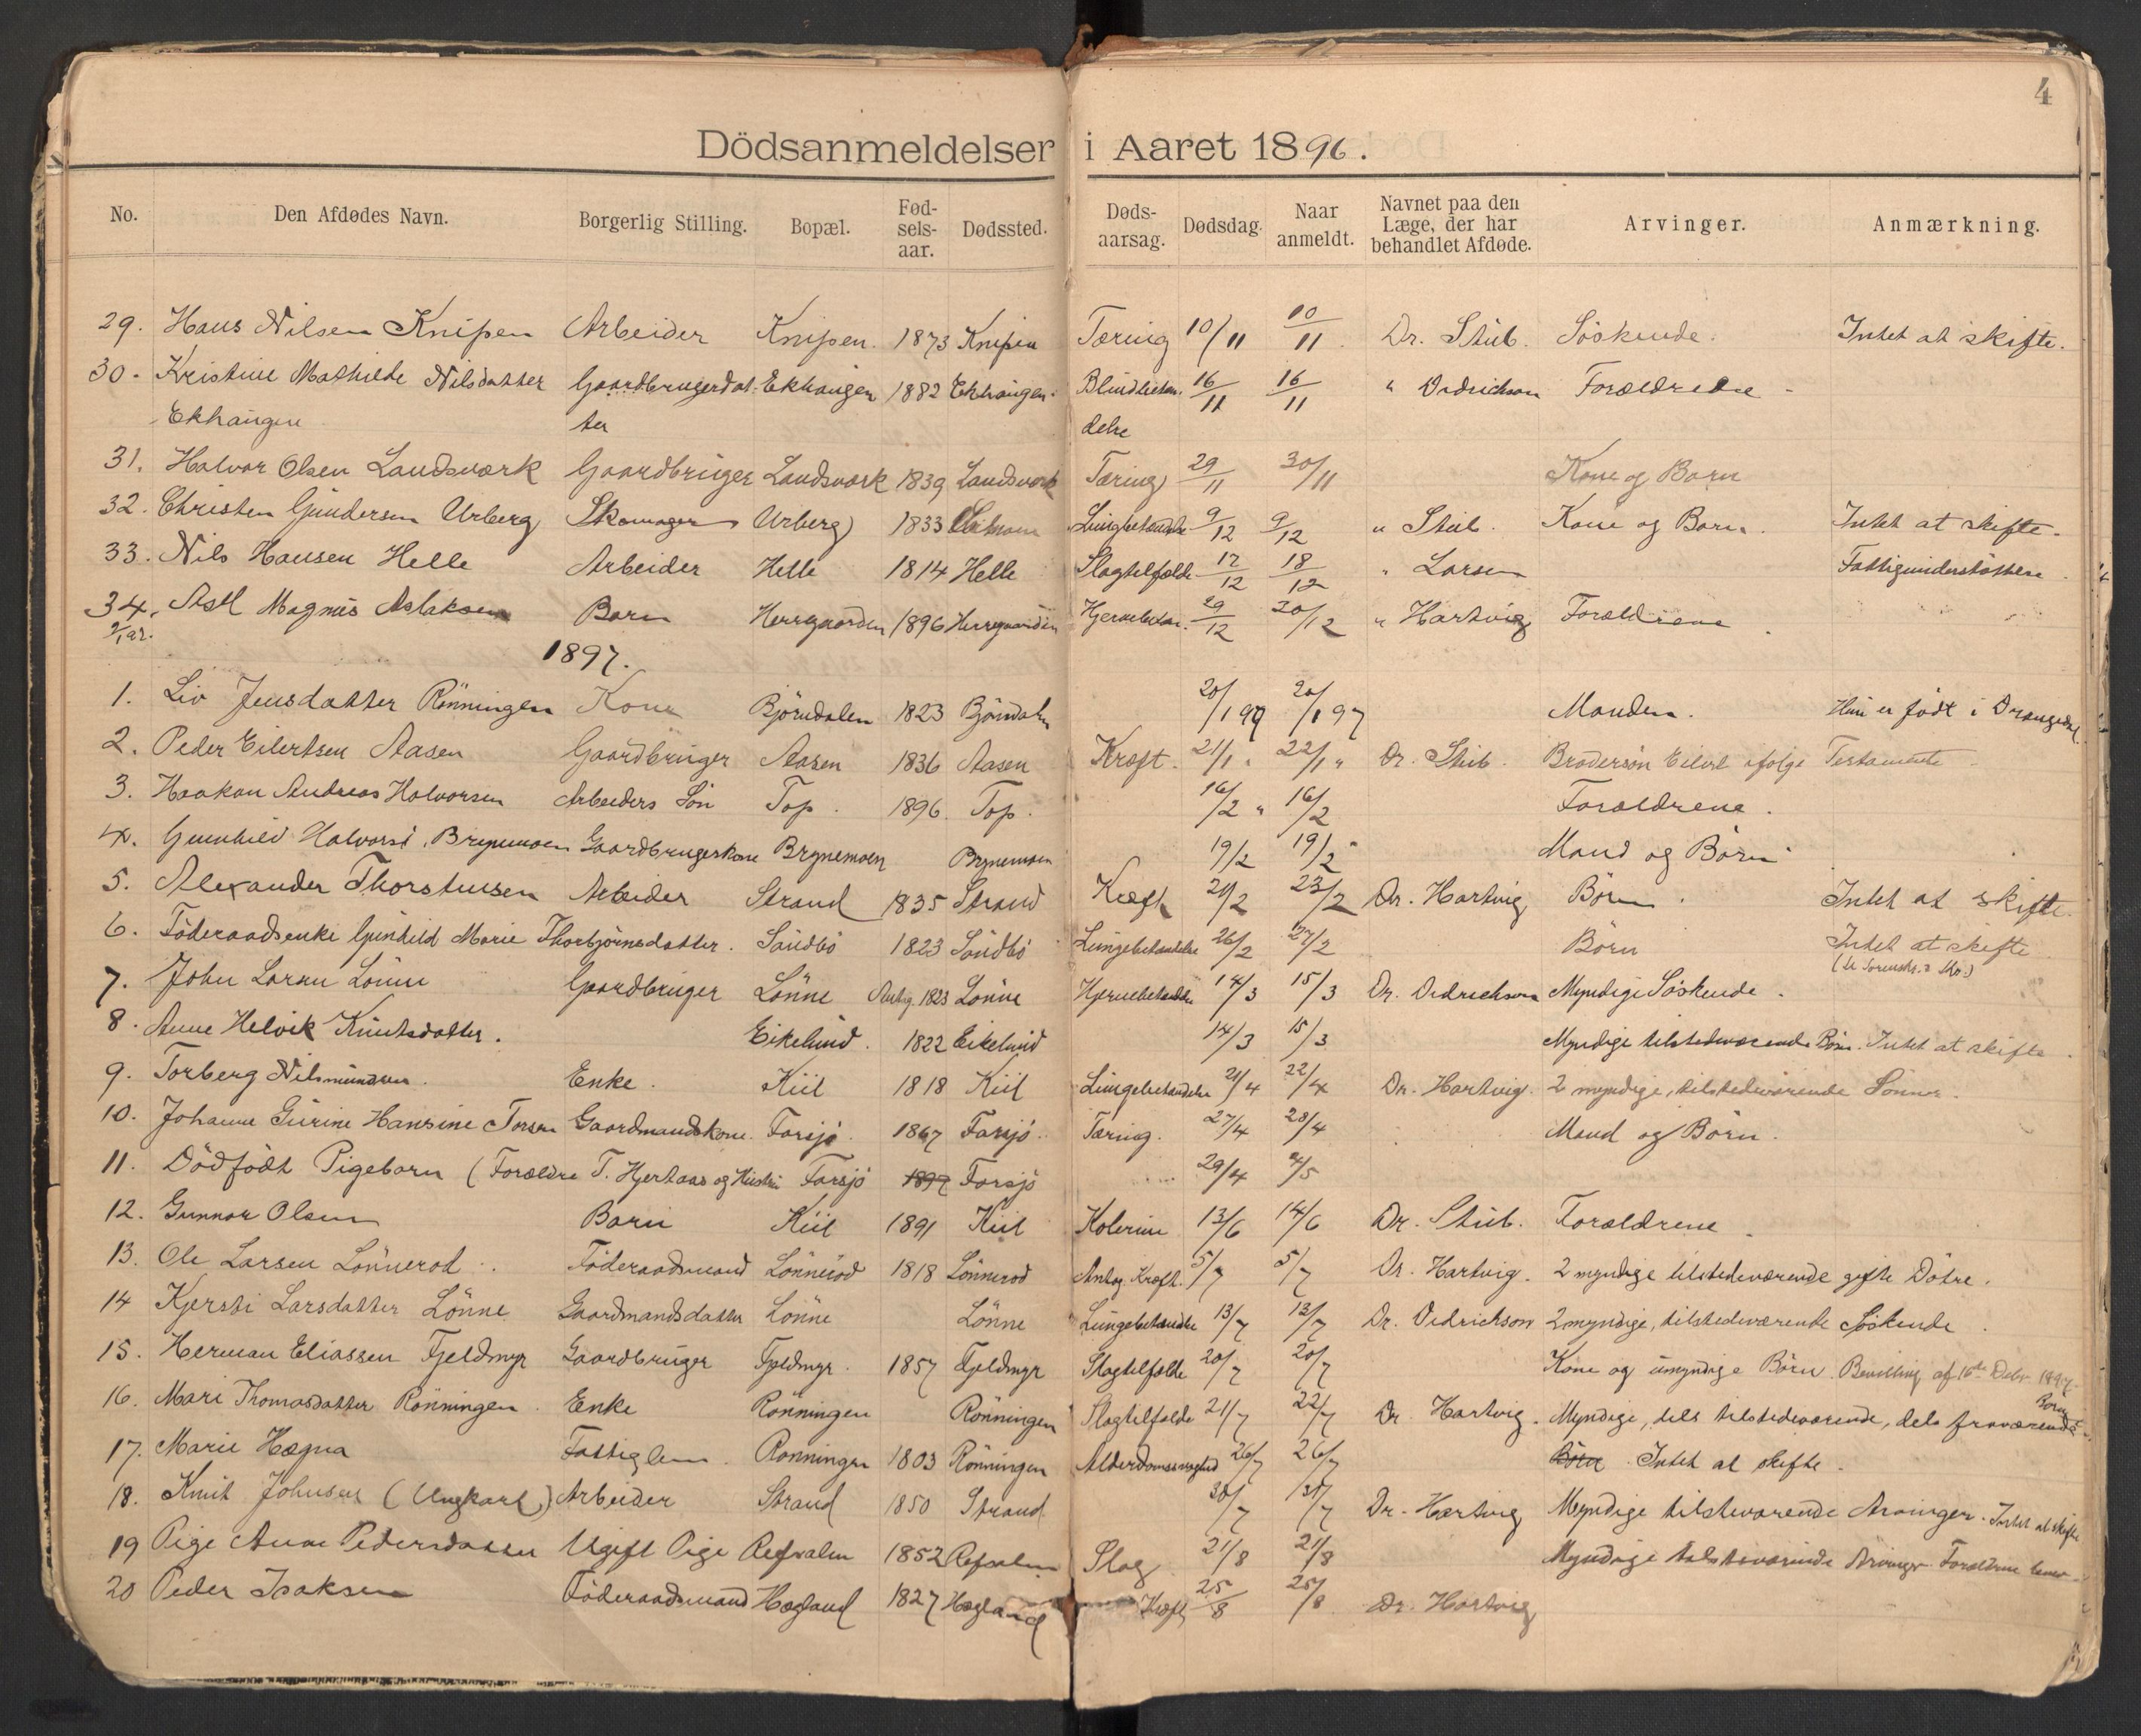 4
Dödsanmeldelser i Aaret 1896.
No. Den Afdødes Navn. Borgerlig Stilling. Bopæl. Fødselsaar. Dødssted. Dødsaarsag. Dødsdag. Naar anmeldt. Navnet paa den Læge, der har behandlet Afdøde. Arvinger. Anmærkning.
29. Hans Nilsen Knipen Arbeider Knipen. 1873 Knipen Tæring 10/11 10/11. Dr. Stub. Söskende. Intet at skifte.
30. Kristine Mathilde Nilsdatter Gaardbrugerdat- Ekhaugen 1882 Ekhaugen. 16/11 16/11 " Vedrichson Forældrene
Ekhaugen ter delse
31. Halvor Olsen Landsværk Gaardbruger Landsværk 1839 Landsværk Tæring 29/11 30/11 Kone og Barn
32. Christen Gundersen Urberg Skomager Urberg 1833 9/12 9/12 " Stub. Kone og Barn. Intet at skifte.
33. Nils Hansen Helle Arbeider Helle 1814 Helle Slagtilfælde 17/12 18/12 " Larsen Fattigunderstøttelse.
34. Magnus Aslaksen Barn Herregaarden 1896 Herregaarden 29/12 30/12 " Hartvig Forældrene.
1897.
1. Liv Jensdatter Rönningen Kone Björndalen 1823 Björndalen 20/1 97 20/1 97 Manden. Hun er født i Drangedal.
2. Peder Eilertsen Aasen Gaardbruger Aasen 1836 Aasen Kræft. 21/1 " 22/1 " Dr. Stub. Brodersön Eilert ifølge Testamente
3. Haakon Andreas Halvorsen Arbeiders Sön Top. 1896. Top. 16/2 " 16/2 Forældrene.
4. Gunhild Halvorsd. Brynemoen Gaardbrugerkone Brynemoen Brynemoen 19/2 19/2 Mand og Börn
5. Alexander Thorstensen Arbeider Strand 1835 Strand Kræft 21/2 23/2 Dr. Hartvig Börn. Intet at skifte.
6. Föderaadsenke Gunhild Marie Thorbjörnsdatter. Sandbö 1823 Sandbö Lungebetændelse 26/2 27/2 Börn Intet at skifte
7. John Larsen Lönne Gaardbruger Lönne Antag. 1823 Lönne Hjernebetændelse 14/3 15/3 Dr. Vedrichson Myndige Söskende.
8. Anne Helvik Knutsdatter. Eikelund. 1822 Eikelund 14/3 15/3 Myndige tilstedeværende Börn. Intet at skifte.
9. Torberg Nilsmundsen. Enke. Kiil 1818 Kiil Lungebetændelse 21/4 22/4 Dr. Hartvig. 2 myndige, tilstedeværende Sönner.
10. Johanne Gurine Hansine Torsen Gaardmandskone. Farsjö. 1867 Farsjö. Tæring. 27/4 28/4 Mand og Börn.
11. Dödfödt Pigebarn (Forældre T. Hjertaas og Hustru Farsjö 1897 Farsjö 29/4 4/5
12. Gunnar Olsen Barn Kiil 1891 Kiil Kolerine 13/6 14/6 Dr. Stub. Forældrene.
13. Ole Larsen Lönneröd. Föderaadsmand Lönneröd 1818 Lönneröd Antag. Kræft. 5/7 5/7 Dr. Hartvig. 2 myndige tilstedeværende gifte Dötre.
14 Kjersti Larsdatter Lönne Gaardmandsdatter Lönne Lönne Lungebetændelse 13/7 13/7 Dr. Vedrichson 2 myndige, tilstedeværende Söskende.
15. Herman Eliassen Fjeldmyr Gaardbruger Fjeldmyr. 1857 Fjeldmyr Slagtilfælde 20/7 20/7 Kone og umyndige Börn. Bevilling af 16de Debr. 1897.
16. Mari Thomasdatter Rönningen. Enke Rönningen Rönningen Slagtilfælde 21/7 22/7 Dr. Hartvig. Myndige, dels tilstedeværende, dels fraværende Börn
17. Marie Hægna Fattiglem. Rönningen 1803 Rönningen Alderdomssvaghed 26/7 26/7 Börn. Intet at skifte.
18. Knut Johnsen (Ungkarl) Arbeider Strand 1850 Strand 30/7 31/7 Dr. Hartvig Myndige tilstedeværende Arvinger. Intet at skifte
19 Pige Anne Pedersdatter Ugift Pige Refsalen 1852 Refsalen Slag 21/8 21/8 Myndige tilstedeværende Arvinger. Forældrene lever
20 Peder Isaksen Föderaadsmand Hægland 1827 Hægland Kræft 25/8 25/8 Dr. Hartvig